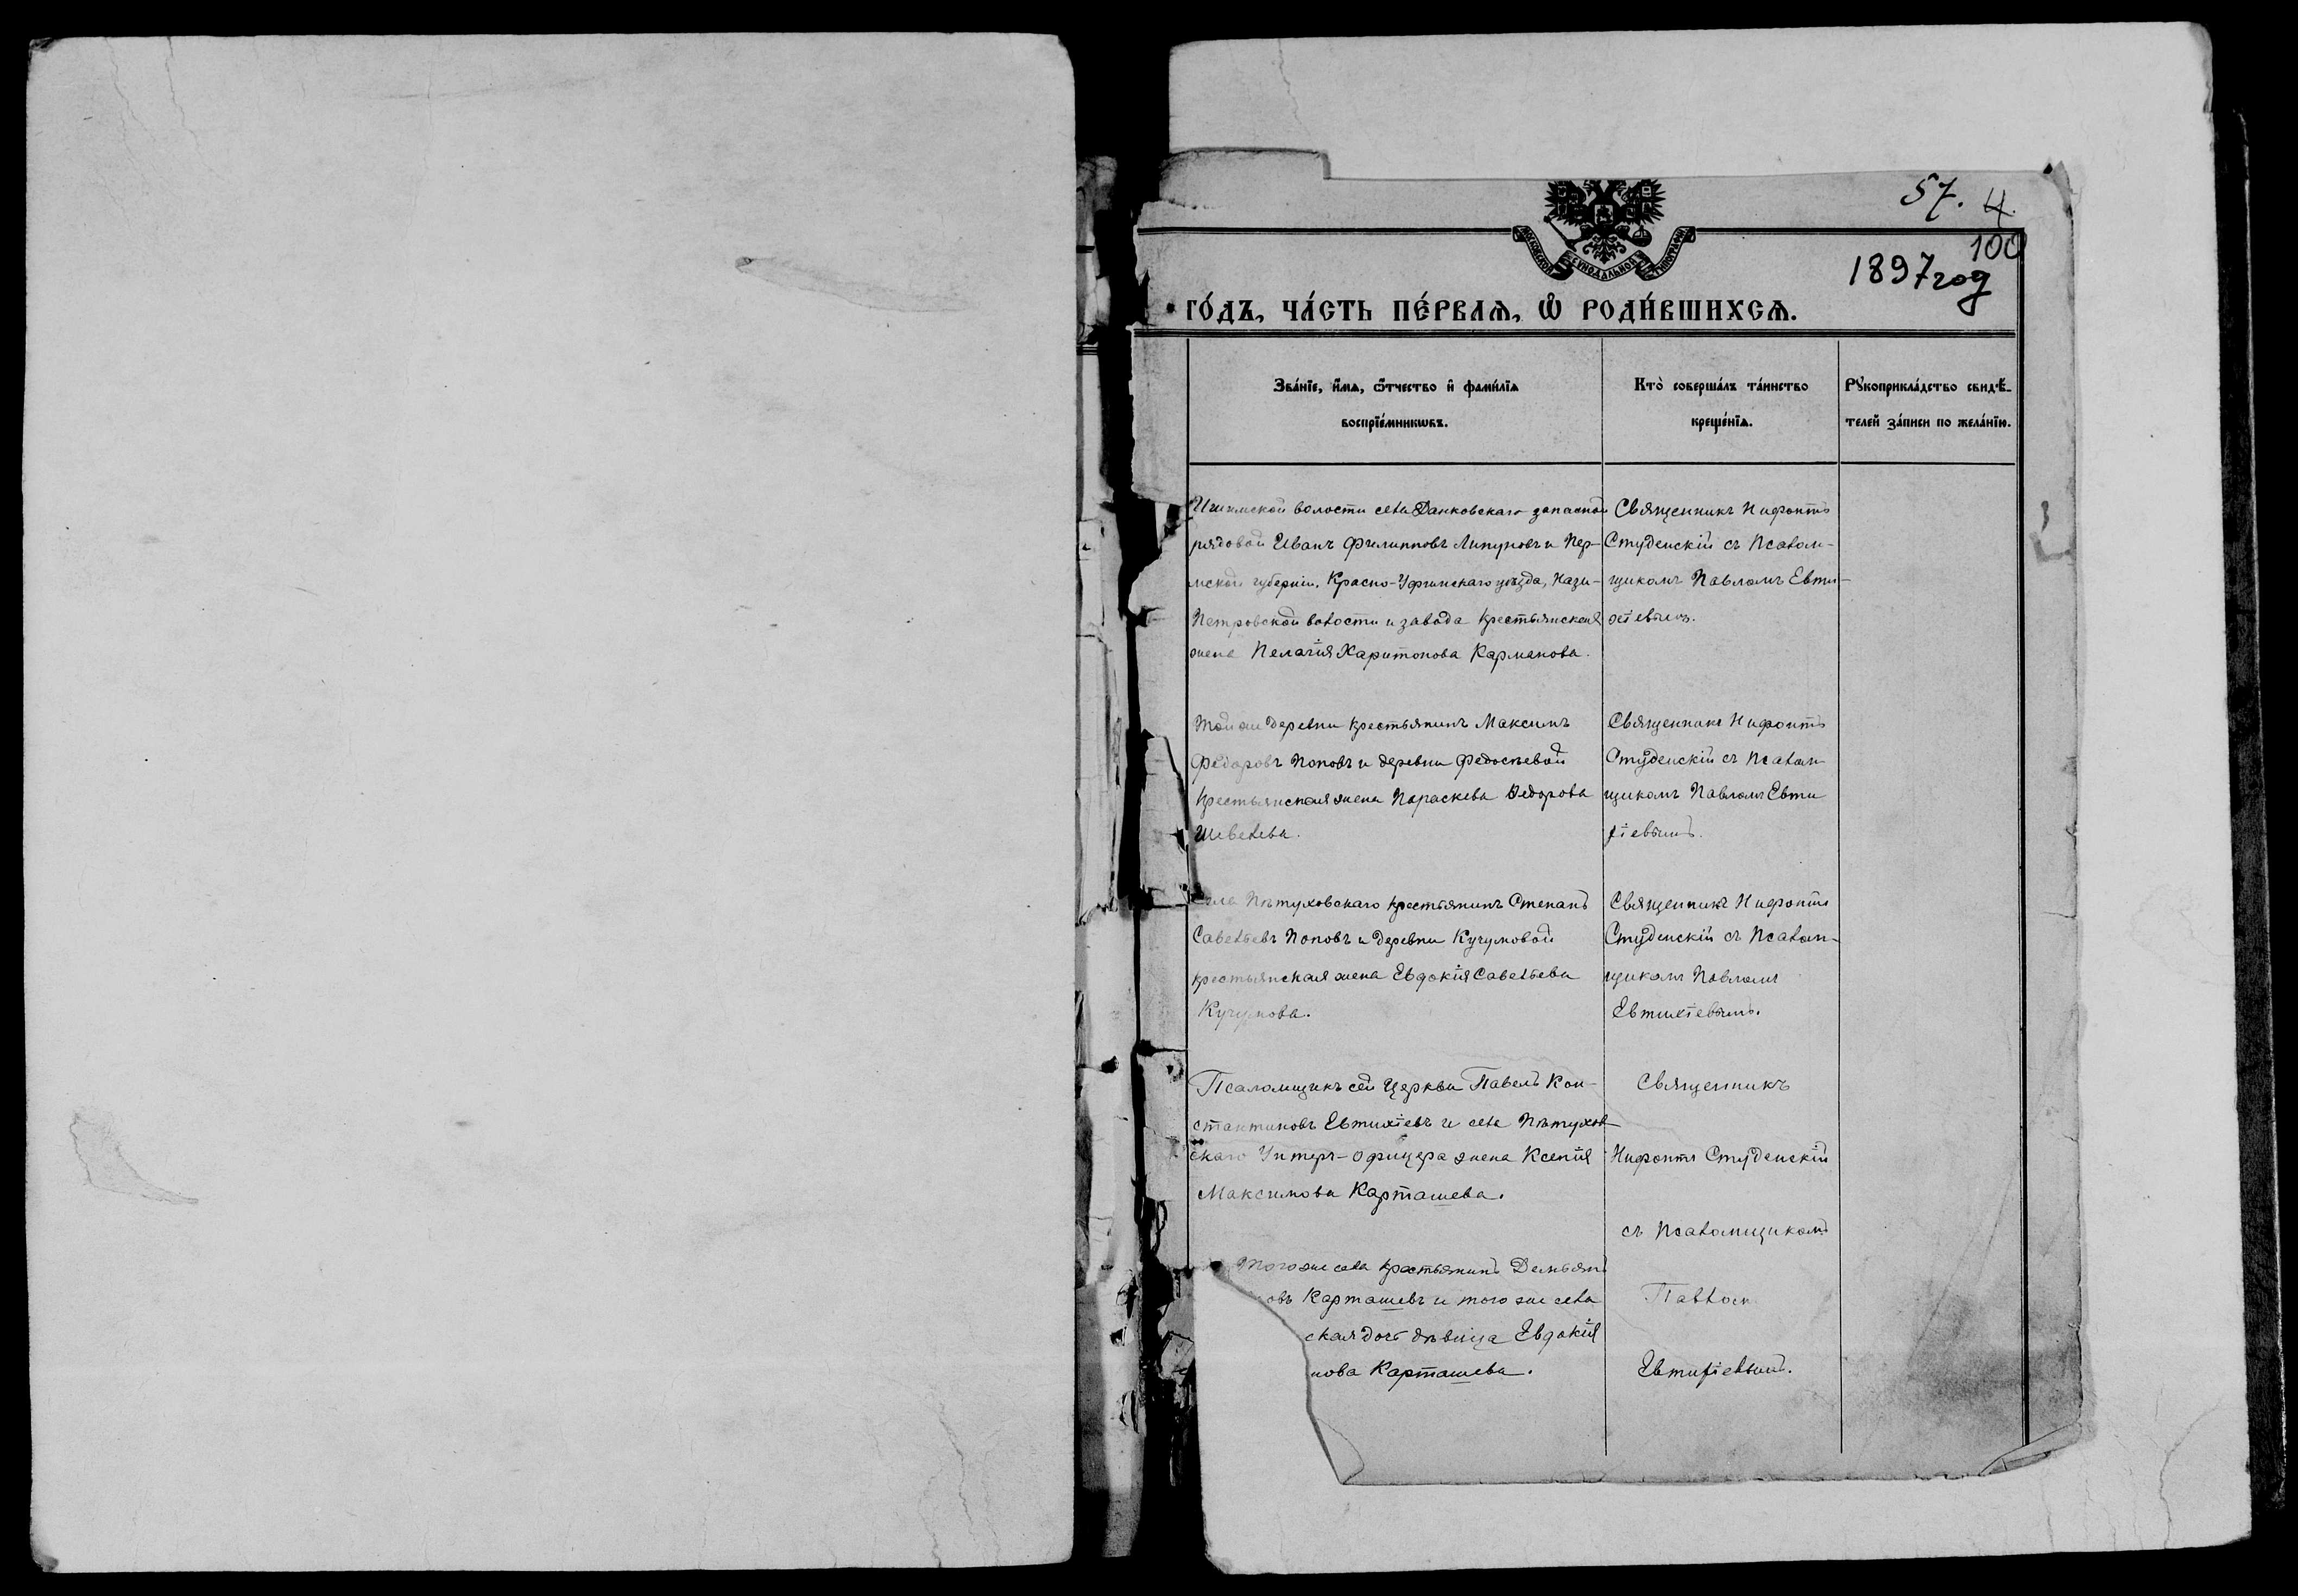 57. 4.
100
1897 год
МОСКОВСКОЙ СѴНОДАЛЬНОЙ ТИПОГРАФІИ
ГО́ДЪ, ЧА́СТЬ ПЕ́РВАѦ, Ѡ҆ РОДИ́ВШИХСѦ.
Зва́нїе, и҆́мѧ, ѻ҆́тчество и҆ фами́лїѧ
воспрїе́мникѡвъ.
Кто̀ соверша́лъ та́инство
креще́нїѧ.
Рꙋкоприкла́дство свидѣ́-
телей за́писи по жела́нїю.
волости села Данковскаго запасной
рядовой Иванъ Филипповъ Липуновъ и Пер-
мской губерніи, Красно-Уфимскаго уѣзда, Нязи-
Петровской волости и завода крестьянская
жена Пелагія Харитонова Карманова.
Священникъ Нифонтъ
Студенскій съ Псалом-
щикомъ Павломъ Евти-
хіевымъ.
Той же деревни крестьянинъ Максимъ
Федоровъ Поповъ и деревни Федосѣевой
крестьянская жена Параскева Федорова
Шевелева.
Священникъ Нифонтъ
Студенскій съ Псалом-
щикомъ Павломъ Евти
хіевымъ.
Села Пѣтуховскаго крестьянинъ Степанъ
Савельевъ Поповъ и деревни Кучумовой
крестьянская жена Евдокія Савельева
Кучумова.
Священникъ Нифонтъ
Студенскій съ Псалом-
щикомъ Павломъ
Евтихіевымъ.
Псаломщикъ сей Церкви Павелъ Кон-
стантиновъ Евтихіевъ и села Пѣтухов-
скаго Унтеръ-Офицера жена Ксенія
Максимова Карташева.
Священникъ
Нифонтъ Студенскій
съ Псаломщикомъ
Павлом
Евтихіевымъ.
Того же села крестьянинъ Демьянъ
овъ Карташевъ и того же села
ская дочь дѣвица Евдокія
нова Карташева.